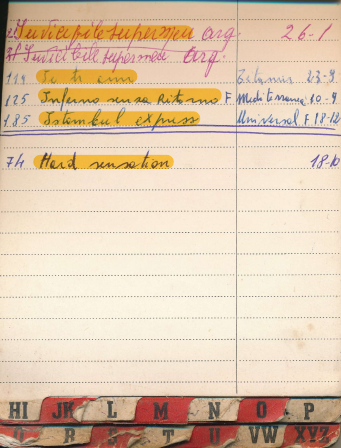 Invicibile supermen arg. 26-1
Invicibile supermen arg.
119 Io ti amo 23-9
125 Inferno sensa Ritorno F Mediterranea 10-9
185 Istambul express Universal F 18-12
74 Hard sensation 18-10
HI JK L M N O P
Q R S T U VW XYZ